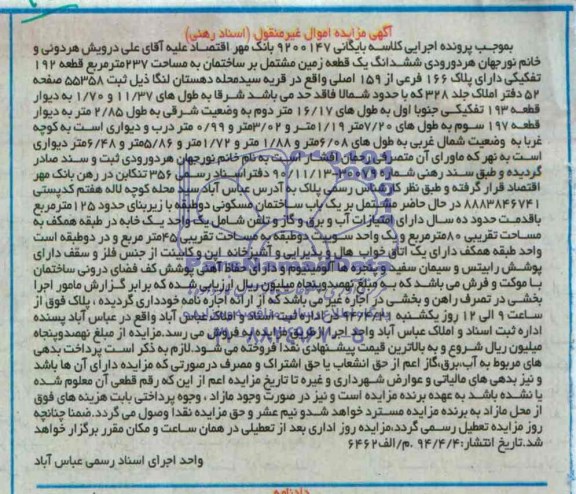 آگهی مزایده اموال غیرمنقول (اسناد رهنی)
بموجب پرونده اجرایی کلاسه بایگانی ۹۲۰۰۱۴۷ بانک مهر اقتصاد علیه آقای علی درویش هردونی و
خانم نورجهان هردورودی ششدانگ یک قطعه زمین مشتمل بر ساختمان به مساحت ۲۳۷مترمربع قطعه ۱۹۲
تفکیکی دارای پلاک ۱۶۶ فرعی از ۱۵۹ اصلی واقع در قریه سیدمحله دهستان لنگا ذیل ثبت ۵۵۳۵۸ صفحه
۵۲ دفتر املاک جلد ۳۲۸ که با حدود شمالا فاقد حد می باشد شرقا به طول های ۱۱/۳۷ و ۱/۷۰ به دیوار
قطعه ۱۹۳ تفکیکی جنوبا اول به طول های ۱۶/۱۷ متر دوم به وضعیت شرقی به طول ۲/۸۵ متر به دیوار
قطعه ۱۹۷ سوم به طول های ۷/۲۰متر ۱/۱۹متر و ۳/۰۲متر و ۰/۹۹ متر درب و دیواری است به کوچه
غربا به وضعیت شمال غربی به طول های ۶/۰۸متر و ۱/۸۸ متر و ۱/۷۲متر و ۵/۸۶متر و ۶/۴۸متر دیواری
است به نهر که ماورای آن متصرفی رحمان افشار است به نام خانم نورجهان هردورودی ثبت و سند صادر
گردیده و طبق سند رهنی شماره ۹۰/۱۱/۱۳ دفتر اسناد رسمی ۳۵۶ تنکابن در رهن بانک مهر
اقتصاد قرار گرفته و طبق نظر کارشناس رسمی پلاک به آدرس عباس آباد سید محله کوچه لاله هفتم کدپستی
۸۸۸۳۸۴۶۷۴۱ در حال حاضر مشتمل بر یک باب ساختمان مسکونی دوطبقه با زیربنای حدود ۱۲۵مترمربع
باقدمت حدود ده سال دارای امتیازات آب و برق و گاز و تلفن شامل یک واحد یک خابه در طبقه همکف به
مساحت تقریبی ۸۰مترمربع و یک واحد سوییت دوطبقه به مساحت تقریبی ۴۵متر مربع و در دوطبقه است
واحد طبقه همکف دارای یک اتاق خواب هال و پذیرایی و آشپزخانه اپن و کابینت از جنس فلز و سقف دارای
پوشش رابیتس و سیمان سفید و پنجره ها آلومینیوم و دارای حفاظ آهنی پوشش کف فضای درونی ساختمان
با موکت و فرش می باشد که به مبلغ نهصدوپنجاه میلیون ریال ارزیابی شده که برابر گزارش مامور اجرا
بخشی در تصرف راهن و بخشی در اجاره غیر می باشد که از ارائه اجاره نامه خودداری گردیده، پلاک فوق از
ساعت ۹ الی ۱۲ روز یکشنبه ۹۴/۴/۲۱ در اداره ثبت اسناد و املاک عباس آباد واقع در عباس آباد پسنده
اداره ثبت اسناد و املاک عباس آباد واحد اجرا از طریق مزایده به فروش می رسد.مزایده از مبلغ نهصدوپنجاه
میلیون ریال شروع و به بالاترین قیمت پیشنهادی نقدا فروخته می شود.لازم به ذکر است پرداخت بدهی
های مربوط به آب،برق،گاز اعم از حق انشعاب یا حق اشتراک و مصرف درصورتی که مزایده دارای آن ها باشد
و نیز بدهی های مالیاتی و عوارض شهرداری و غیره تا تاریخ مزایده اعم از این که رقم قطعی آن معلوم شده
یا نشده باشد به عهده برنده مزایده است و نیز در صورت وجود مازاد ، وجوه پرداختی بابت هزینه های فوق
از محل مازاد به برنده مزایده مسترد خواهد شدو نیم عشر و حق مزایده نقدا وصول می گردد.ضمنا چنانچه
روز مزایده تعطیل رسمی گردد،مزایده روز اداری بعد از تعطیلی در همان ساعت و مکان مقرر برگزار خواهد
شد.تاریخ انتشار:۹۴/۴/۴ .م/الف۶۴۶۲
واحد اجرای اسناد رسمی عباس آباد
دادنامه